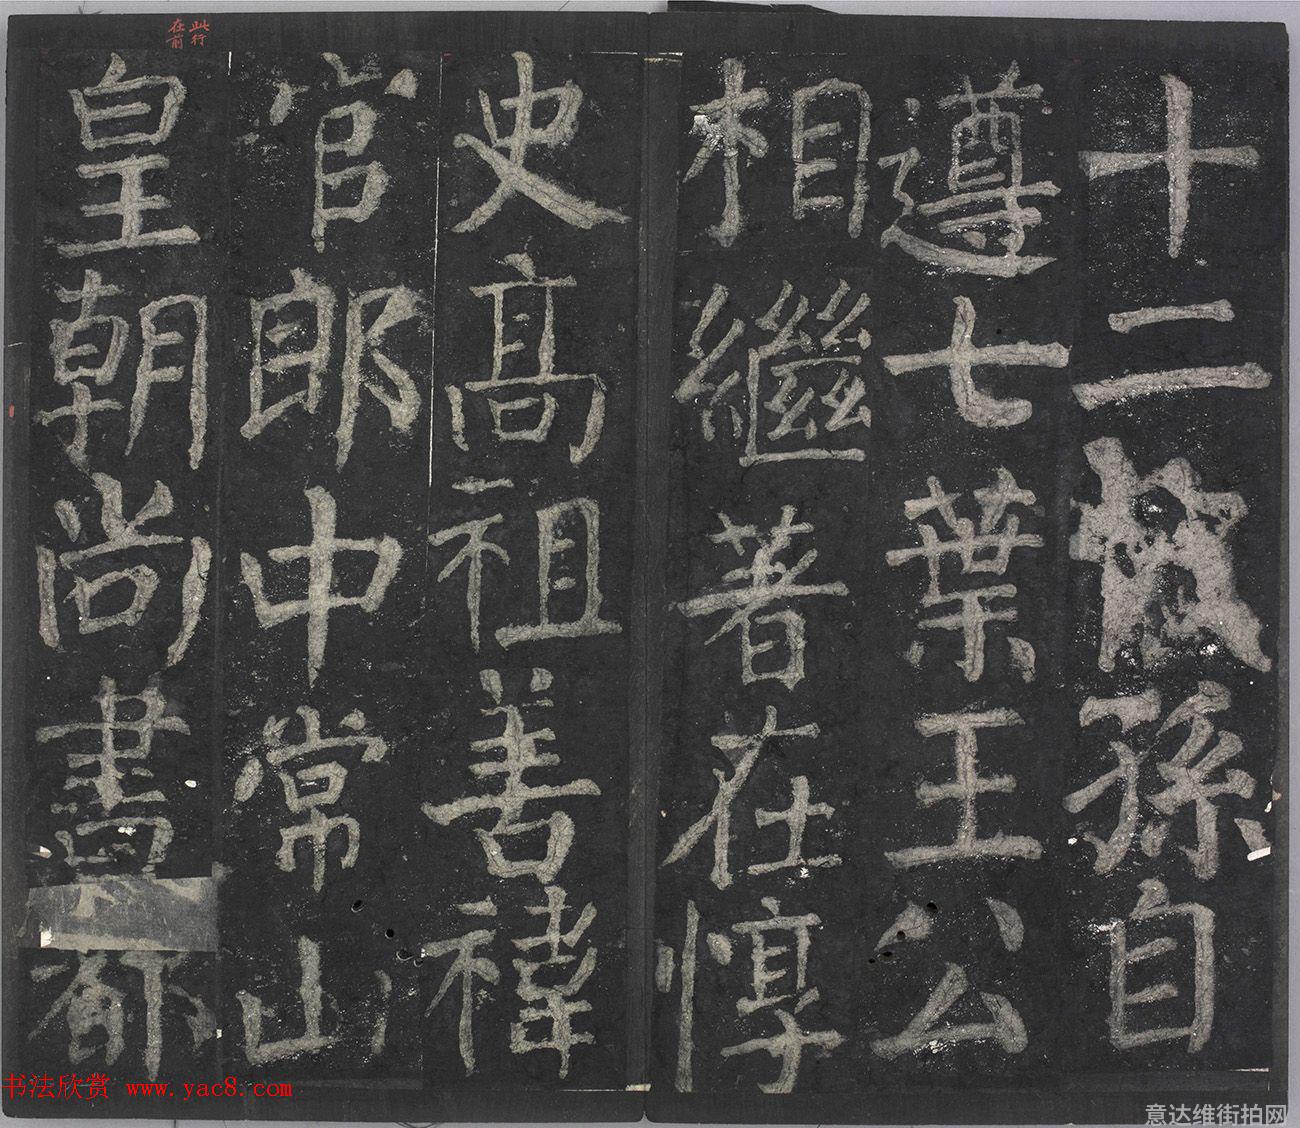 十二孫自
遵七葉王公
相繼著在惇
史高祖善禕
官郎中常山
皇朝尚書都
此行
在前
书法欣赏 www.yac8.com
意达维街拍网